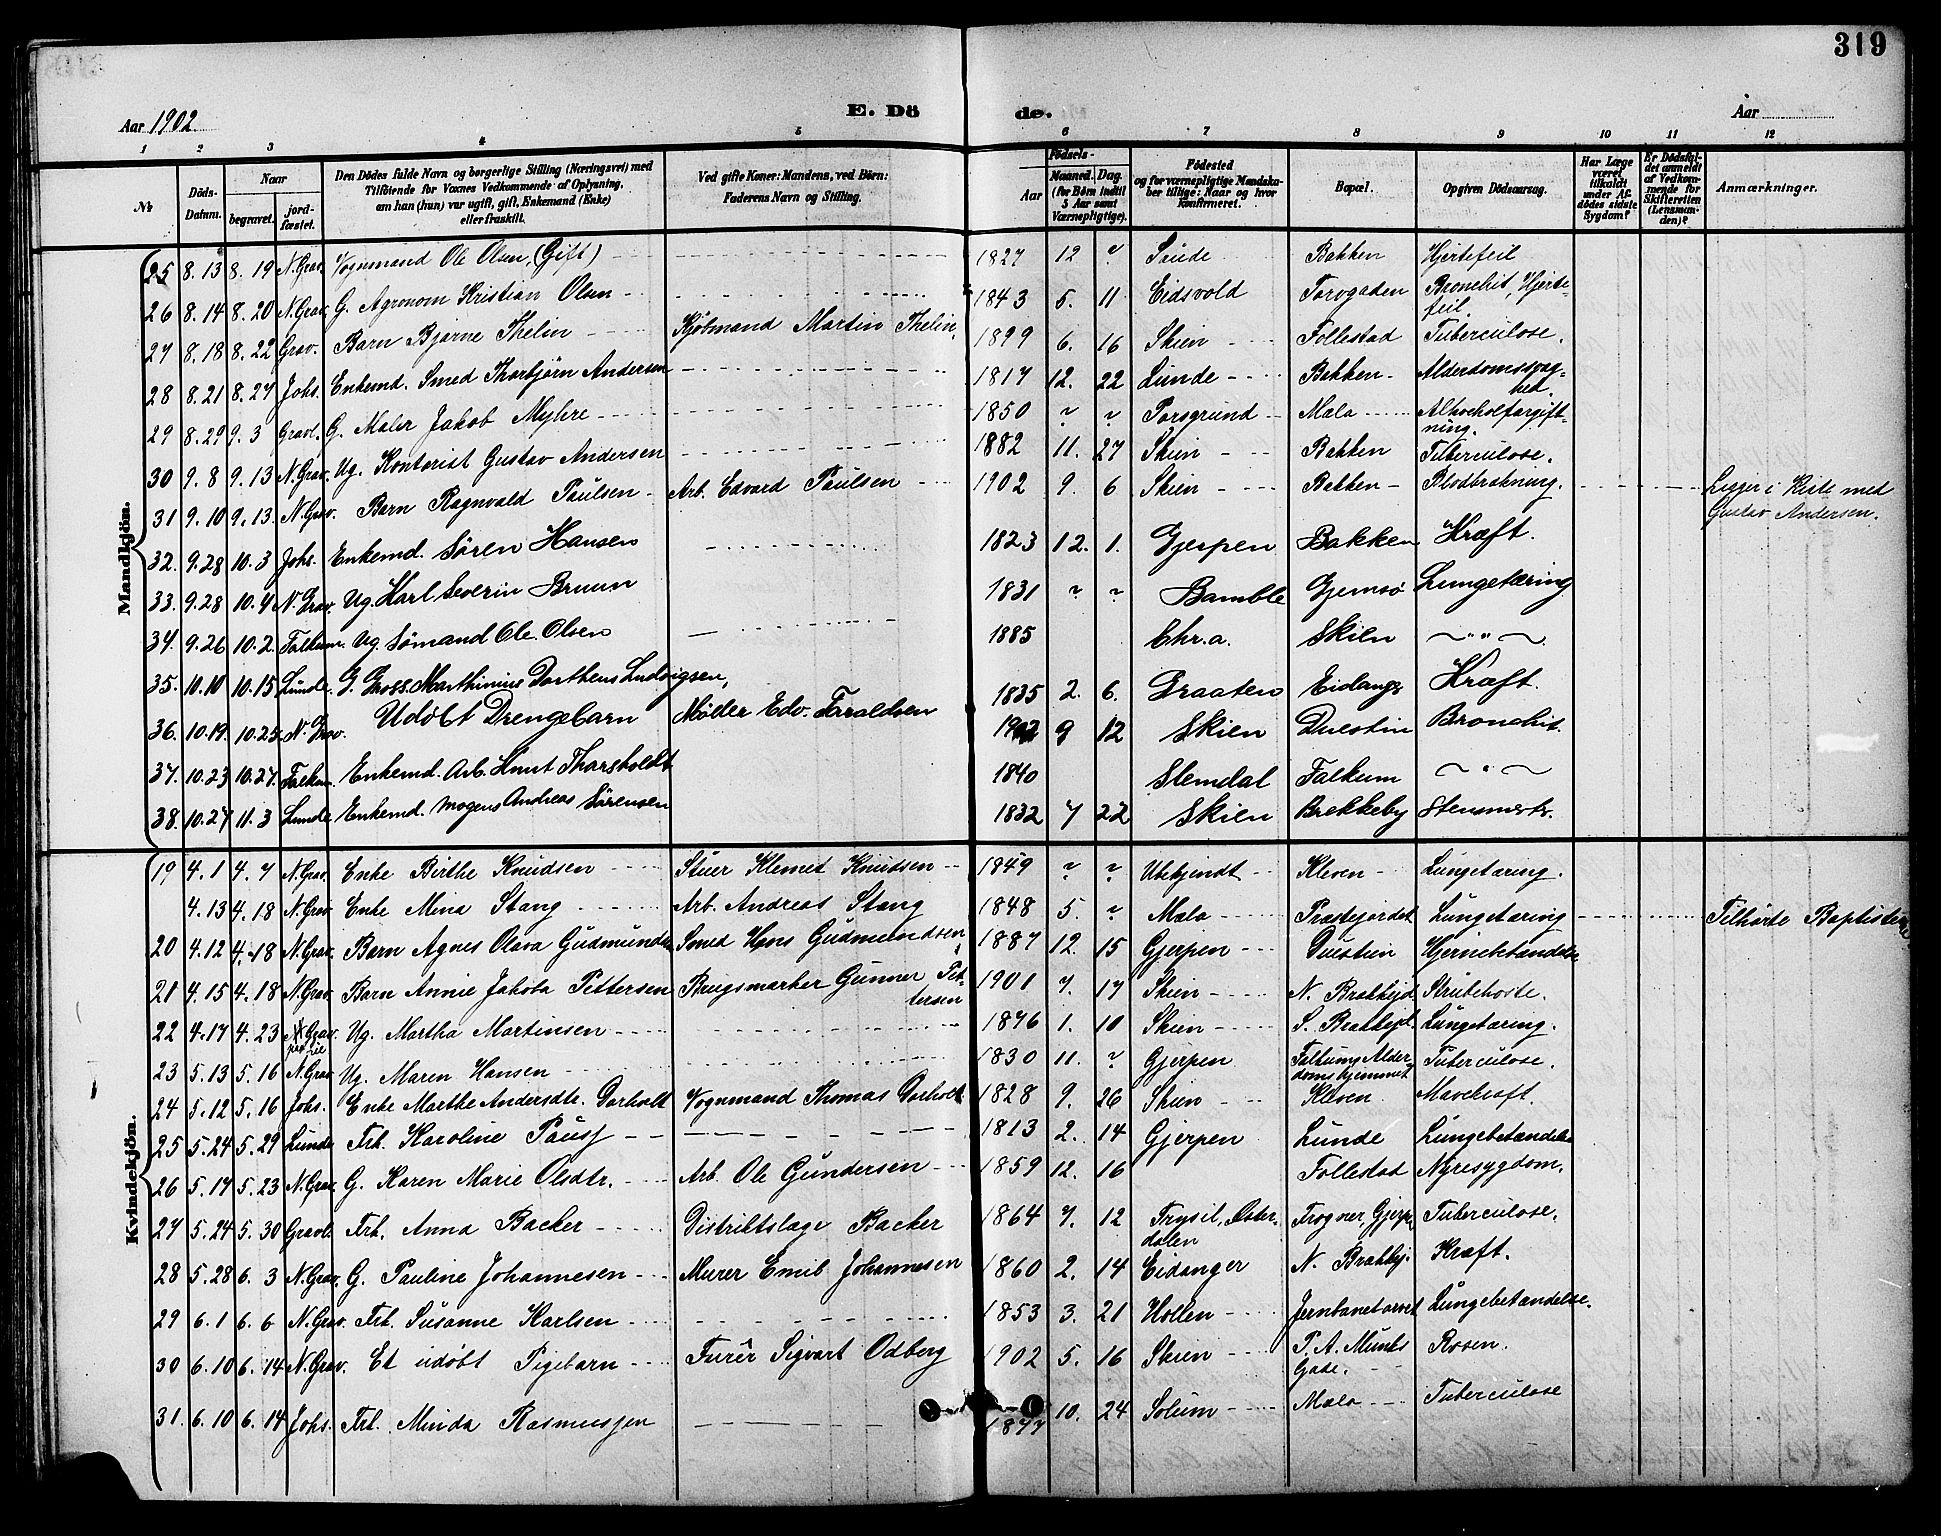 319
Aar 1902 E. Dö de. Aar
1 2 3 4 5 6 7 8 9 10 11 12
№ Döds-Datum. Naar begravet. jord-fæstet. Den Dödes fulde Navn og borgerlige Stilling (Næringsvei) med Tilföiende for Voxnes Vedkommende af Oplysning, om han (hun) var ugift, gift, Enkemand (Enke) eller fraskilt. Ved gifte Koner: Mandens, ved Börn: Faderens Navn og Stilling. Födsels- Aar Maaned. Dag. (for Börn indtil 5 Aar samt Værnepligtige). Födested og for værnepligtige Mandska-ber tillige: Naar og hvor Konfirmeret. Bopæl. Opgiven Dödsaarsag. Har Læge været tilkaldt under Af-dödes sidste Sygdom? Er Dödsfal-det anmeldt af Vedkom-mende for Skifteretten (Lensman-den)? Anmærkninger.
Mandkjön.
25 8.13 8.19 N.Grav. Vognmand Ole Olsen, (Gift) 1827 12 ~ Saude Bakken Hjertefeil
26 8.14 8.20 N.Grav. G. Agronom Kristian Olsen 1843 5. 11 Eidsvold Torvgaden Bronchit, Hjerte-feil.
27 8.18 8.22 Grav. Barn Bjarne Thelin Kjöbmand Martin Thelin. 1899 6. 16 Skien Follestad Tuberculose.
28 8.21 8.27 Johs. Enkemd. Smed Thorbjörn Andersen 1817 12. 22 Lunde Bakken Alderdomssvag-hed.
29 8.29 9.3 Gravl. G. Maler Jakob Myhre 1850 ~ ~ Porsgrund Mæla Alkoholforgift-ning.
30 9.8 9.13 N.Grav. Ug. Kontorist Gustav Andersen 1882 11. 27 Skien Bakken Tuberculose.
31 9.10 9.13. N.Grav. Barn Ragnvald Paulsen Arb. Edvard Paulsen 1902 9. 6 Skien Bakken Blodbrækning. Ligger i Kiste med Gustav Andersen.
32. 9.28 10.3 Johs. Enkemd. Sören Hansen 1823 12. 1. Gjerpen Bakken Kræft.
33. 9.28 10.4 N.Grav. Ug. Karl Severin Bruun 1831 ~ ~ Bamble Gjemsö Lungetæring
34. 9.26 10.2. Falkum. Ug. Sömand Ole Olsen 1885 Chr.a. Skien ~ " ~
35. 10.10 10.15 Lunde. G. Gross. Marthinius Dorthens Ludvigsen, 1835 2. 6. Graaten Eidang. Kræft.
36. 10.19. 10.25 N.Grav. Udöbt Drengebarn Möller Edv. Taraldsen 1902 9 12 Skien Duestin Bronchit.
37. 10.23 10.27. Falkum. Enkemd. Arb. Knut Tharsholdt 1840 Slemdal Falkum ~ " ~
38. 10.27 11.3 Lunde. Enkemd. Mogens Andreas Sörensen 1832 7 22 Skien Brekkeby
Kvindekjön.
19 4.1 4.7 N.Grav. Enke Birthe Knudsen Stuer Klemet Knudsen 1849 ~ ~ Ubekjendt Kleven Lungetæring.
4.13 4.18 N.Grav Enke Mina Stang Arb. Andreas Stang 1848 5. ~ Mæla Præstejordet Lungetæring Tilhörte Baptisterne
20 4.12 4.18 N.Grav. Barn Agnes Olava Gudmunds Smed Hans Gudmundsen 1887 12. 15 Gjerpen Duestien Hjernebetændelse
21 4.15 4.18 N.Grav Barn Annie Jakoba Pettersen Brugsmærker Gunner Pet-tersen 1901 7. 17 Skien N. Brækkejd Strubehoste.
22 4.17 4.23 N.Grav. Ug. Martha Martinsen 1876 1. 10 Skien S. Brækkejd. Lungetæring.
23 5.13 5.16 N.Grav Ug. Maren Hansen 1830 11. ~ Gjerpen Falkums Alder domshjemmet Tuberculose.
24 5.12 5.16 Johs. Enke Marthe Andersdtr. Dorholt Vognmand Thomas Dorholt 1828 9. 26 Skien Kleven Mavekræft.
25 5.24 5.29 Lunde Frk. Karoline Paus 1813 2. 14 Gjerpen Lunde Lungebetændelse
26 5.17 5.23 N.Grav. G. Karen Marie Olsdtr. Arb. Ole Gundersen 1859 12. 16 Follestad Nyresygdom.
27 5.24 5.30 Gravl. Frk. Anna Backer Distriktslæge Backer 1864 7. 12 Trysil, Öster-dalen Frogner, Gjerp. Tuberculose.
28 5.28 6.3 N.Grav. G. Pauline Johannesen Murer Emil Johannesen 1860 2. 14 Eidanger N. Brækkej. Kræft.
29 6.1 6.6 N.Grav. Frk. Susanne Karlsen 1853 3. 21 Hollen Jernbanetorvet Lungebetændelse.
30 6.10 6.14 N.Grav. Et udöbt Pigebarn Furér Sigvart Odberg 1902 5. 16 Skien P. A. Munks Gade. Rosen.
31. 6.10 6.14 Johs. Frk. Minda Rasmussen 1877 10. 24 Solum Mæla Tuberculose